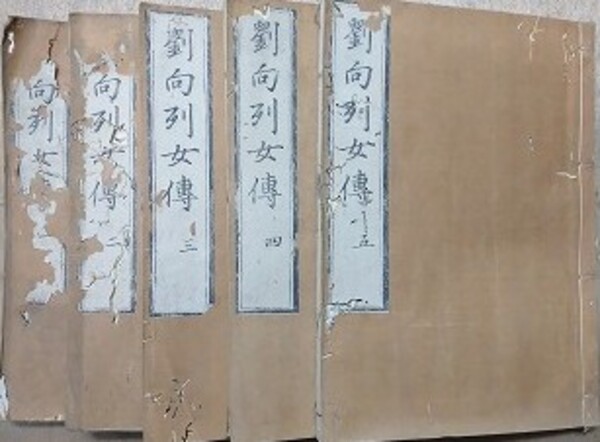 向列女
向列女傳二
劉向列女傳
三
劉向列女傳
四
劉向列女傳
五